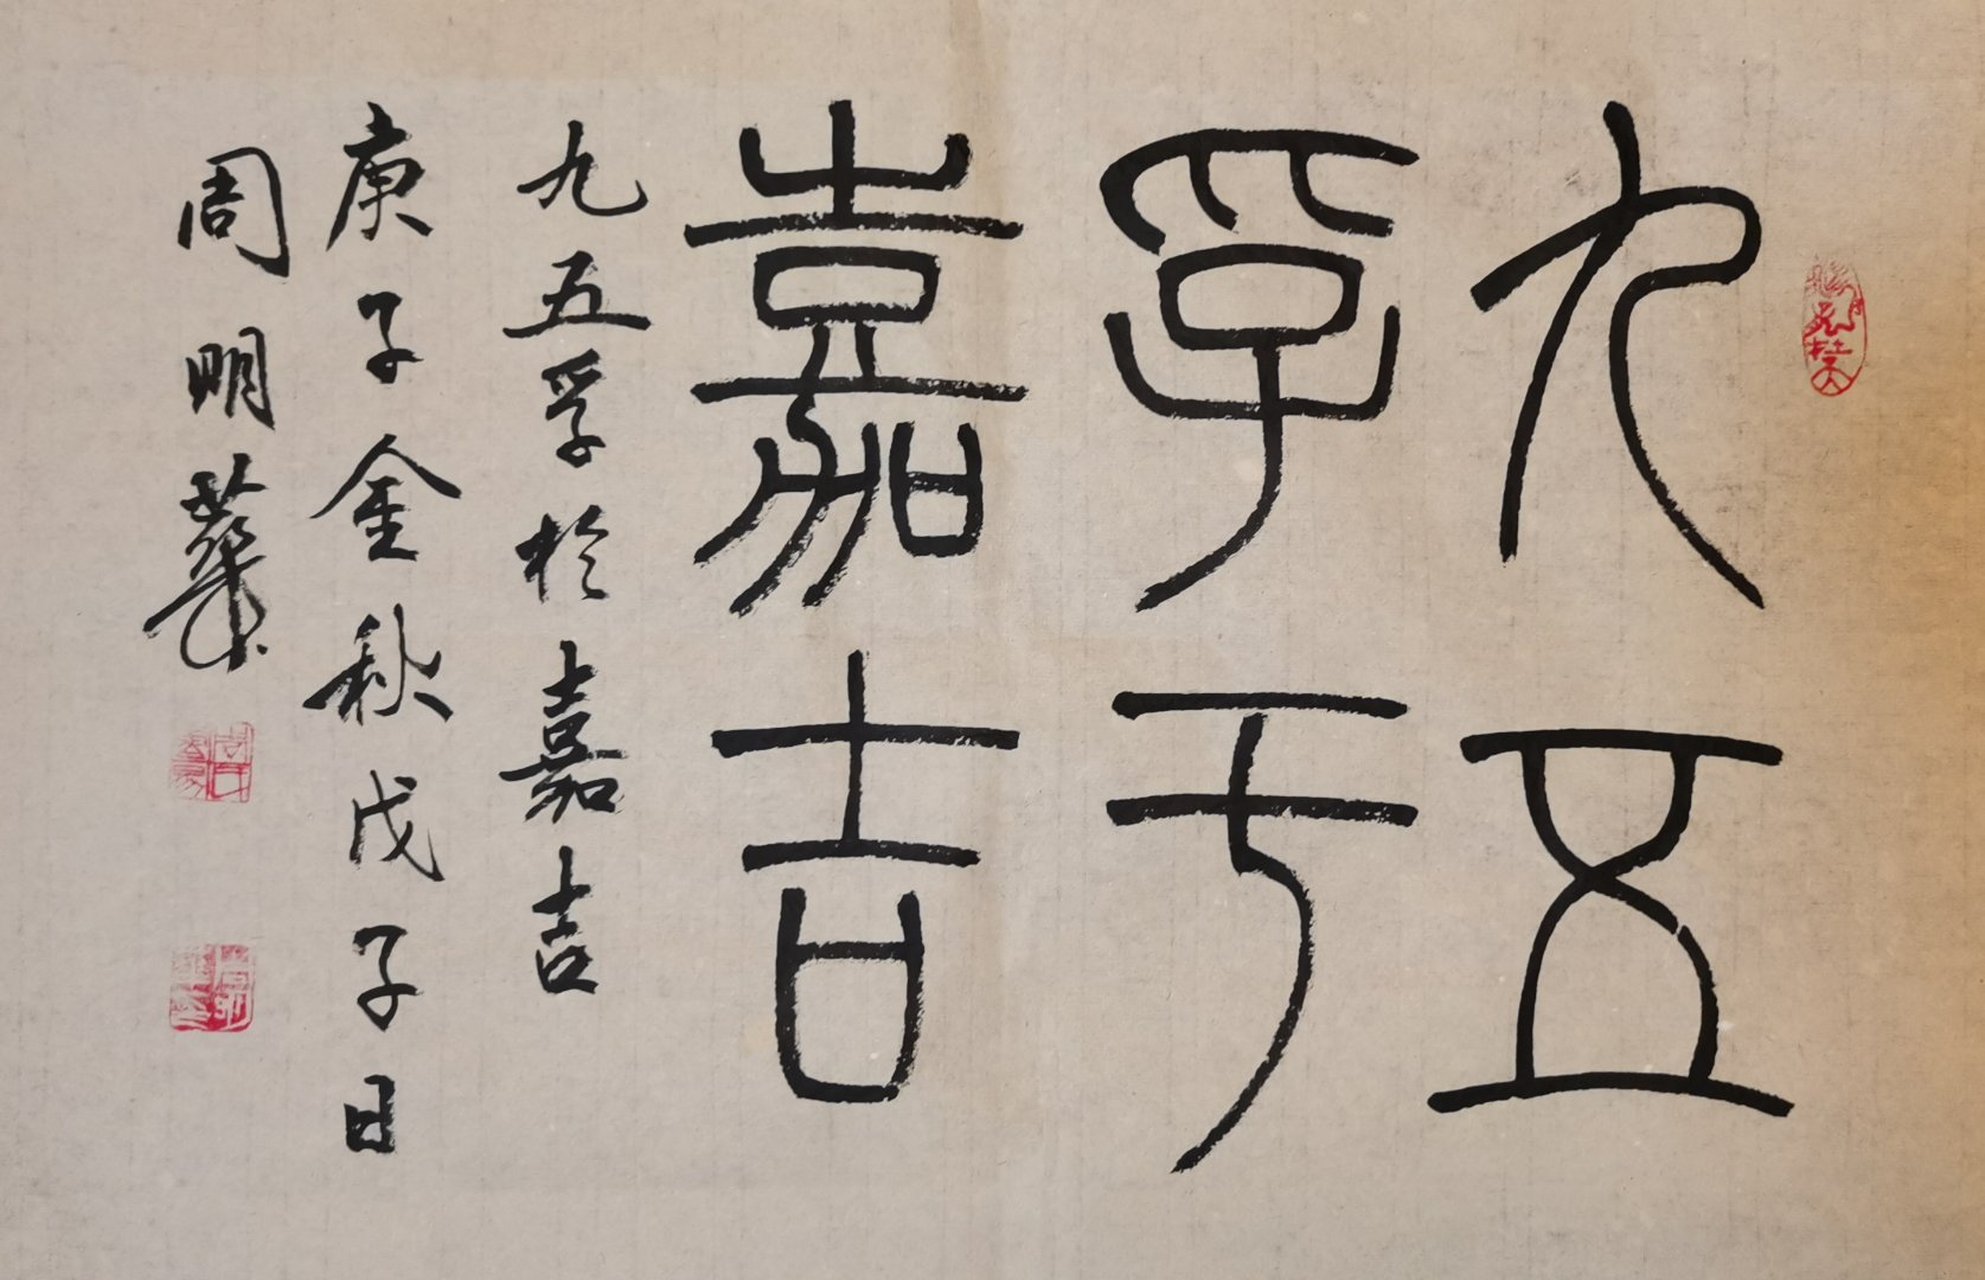 九五
孚于
嘉吉
九五孚於嘉吉
庚子金秋戊子日
周明華